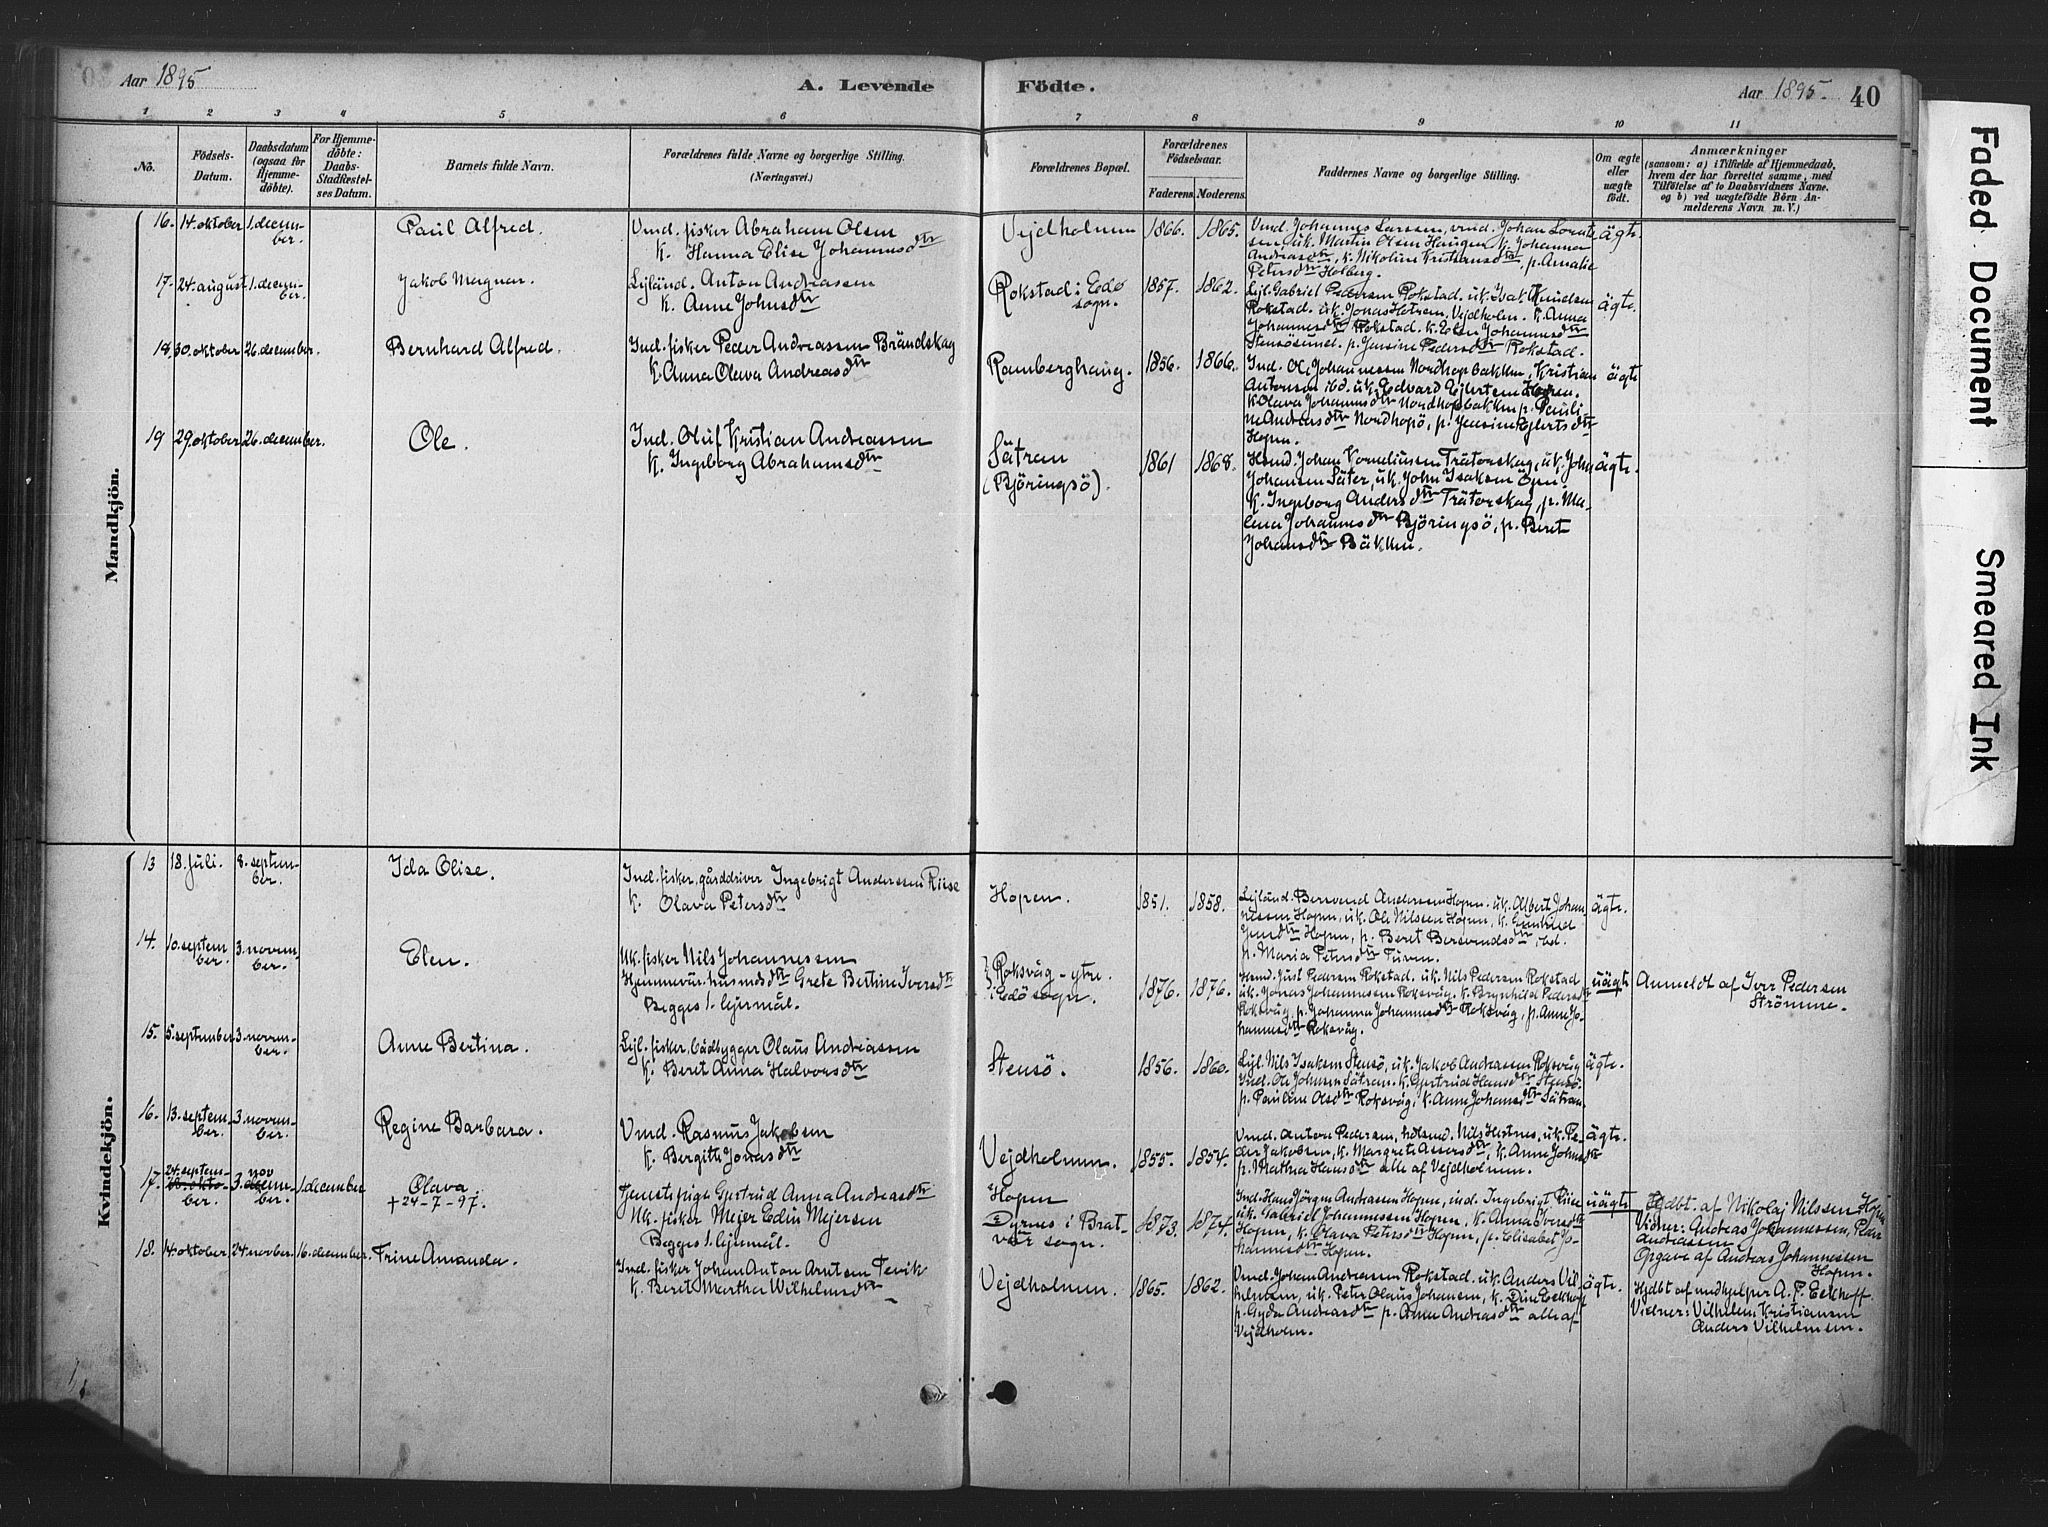 Aar 1895
A. Levende
Födte.
Aar 1895. 40
1 2 3 4 5 6 7 8 9 10 11
No.
Födsels-Datum.
Daabsdatum (ogsaa for Hjemmedöbte).
For Hjemmedöbte: Daabs-Stadfæstelses Datum.
Barnets fulde Navn.
Forældrenes fulde Navne og borgerlige Stilling. (Næringsvei.)
Forældrenes Bopæl.
Forældrenes Födselsaar.
Faderens. Moderens.
Faddernes Navne og borgerlige Stilling.
Om ægte eller uægte födt.
Anmærkninger
(saasom: a) i Tilfælde af Hjemmedaab, hvem der har forrettet samme, med Tilföielse af to Daabsvidners Navne, og b) ved uægtefödte Börn Anmelderens Navn m. V.)
Mandkjön.
16. 14. oktober 1. decem-
ber.
Paul Alfred.
Vmd. fisker Abraham Olsen
K. Hanna Elise Johannesdtr
Vejdholmen 1866. 1865.
Vmd. Johannes Larssen, vmd. Johan Lorent-
sen uk. Martin Olsen Haugen, k. Johanna
Andreasdtr, k. Nikoline Kristensdtr, p. Amalie
Petersdtr Holberg.
ägte
17. 24. august 1. decem-
ber.
Jakob Magnar.
Lejländ. Anton Andreassen
K. Anne Johnsdtr
Rokstad i Edö
sogn.
1857. 1862.
Lejl. Gabriel Pedersen Rokstad. uk. Isak Knudsen
Rokstad. uk. Jonas Hetsem, Vejdholm. k. Anna
Johannesdtr Rokstad. k. Elen Johannesdtr
Stensösund. p. Jensine Pedersdtr Rokstad.
ägte.
18. 30. oktober 26. december.
Bernhard Alfred.
Ind. fisker Peder Andreassen Brändskag
K. Anna Olava Andreasdtr
Ramberghaug. 1856. 1866.
Ind. Ole Johannessen Nordhopbakken, Kristian
Antonsen ibd. uk. Edvard Ejlertsen Hopen.
k. Olava Johannesdtr Nordhopbakken p. Pauli-
ne Andreasdtr Nordhopö, p. Jensine Ejlertsdtr
Hopen.
ägte
19 29. oktober 26. december.
Ole.
Ind. Oluf Kristian Andreassen
K. Ingeborg Abrahamsdtr
Sätran
(Björingsö).
1861 1868.
Hsmd. Johan Korneliussen Trätorskag, uk. John
Johansen Säter, uk. John Isaksen Öen
K. Ingeborg Andersdtr Trätorskag, p. Ma-
lena Johannesdtr Björingsö, p. Beret
Johansdtr Bäkken.
ägte.
Kvindekjön.
13 18. juli. 8. septem-
ber.
Ida Olise.
Ind. fisker, gårddriver Ingebrigt Anderssen Riise
K. Olava Petersdtr
Hopen. 1851. 1858.
Lejländ. Bersvend Anderssen Hopen. uk. Albert Johan-
nessen Hopen, uk. Ole Nilssen Hopen, k. Gunhild
Jensdtr Hopen, p. Beret Bersvendsdtr, ibd.
p. Maria Petersdtr Tuven.
ägte.
14. 10. septem-
ber. 3. novem-
ber.
Elen.
Uk. fisker Nils Johannessen
Hjemmevär. husmdsdtr Grete Bertine Iversdtr
Begges 1. lejermål.
Roksvåg - ytre
i Edö sogn.
1876. 1876.
Hsmd. Just Pedersen Rokstad, uk. Nils Pedersen Rokstad
uk. Jonas Johannessen Roksvåg. k. Brynhild Pedersdtr
Roksvåg, p. Johanna Johannesdtr Roksvåg, p. Anne Jo-
hannesdtr Roksvåg.
uägte
Anmeldt af Iver Pedersen
Strömme.
15. 5. september 3. novem-
ber.
Anne Bertina.
Lejl. fisker, bådbygger Olaus Andreassen
K. Beret Anna Halvorsdtr
Stensö. 1856. 1860.
Lejl. Nils Isaksen Stensö, uk. Jakob Andreassen Roksvåg
Ind. Ole Johnsen Sätran. k. Gjertrud Hansdtr Stensö.
p. Pauline Olsdtr Roksvåg, k. Anne Johansdtr Sätran.
ägte.
16. 13. septem-
ber. 3. novem-
ber.
Regine Barbara.
Vmd. Rasmus Jakobsen
K. Bergitte Jonasdtr
Vejdholmen. 1855. 1854.
Vmd. Anton Pedersen, hdlsmd. Nils Hestnes, uk. Pe-
der Jakobsen, k. Margrete Assersdtr, k. Anne Johnsdtr
p. Martha Hansdtr alle af Vejdholmen.
ägte.
17. 24. septem-
ber. 3. nov
ber 1. december
Olava
† 24-7-97.
Tjenestpige Gjertrud Anna Andreasdtr
Uk. fisker Mejer Edin Mejersen
Begges 1. lejermål.
Hopen
Dyrnes i Brat-
vär sogn.
1873. 1874.
Ind. Hans Jörgen Andreassen Hopen, ind. Ingebrigt Riise
uk. Gabriel Johannessen Hopen, k. Anna Iversdtr
Hopen, k. Olava Petersdtr Hopen, p. Elisabet Jo-
hannesdtr Hopen.
uägte
Hjdbt. af Nikolaj Nilssen Hopen
Vidner: Andreas Johannessen, Peder
Andreassen
Opgave af Andreas Johannessen
Hopen.
18. 14. oktober 24. novber. 16. december.
Trine Amanda.
Ind. fisker Johan Anton Arntsen Tevik
K. Beret Martha Wilhelmsdtr
Vejdholmen. 1865. 1862.
Vmd. Johan Andreassen Rokstad. uk. Anders Vil-
helmsen, uk. Peter Olaus Johansen, k. Dine Eckhoff
p. Gyda Andreasdtr p. Anna Andreasdtr alle af
Vejdholm.
ägte.
Hjdbt af medhjelper A. P. Eckhoff.
Vidner: Vilhelm Kristiansen
Anders Vilhelmsen.
Faded Document
Smeared Ink